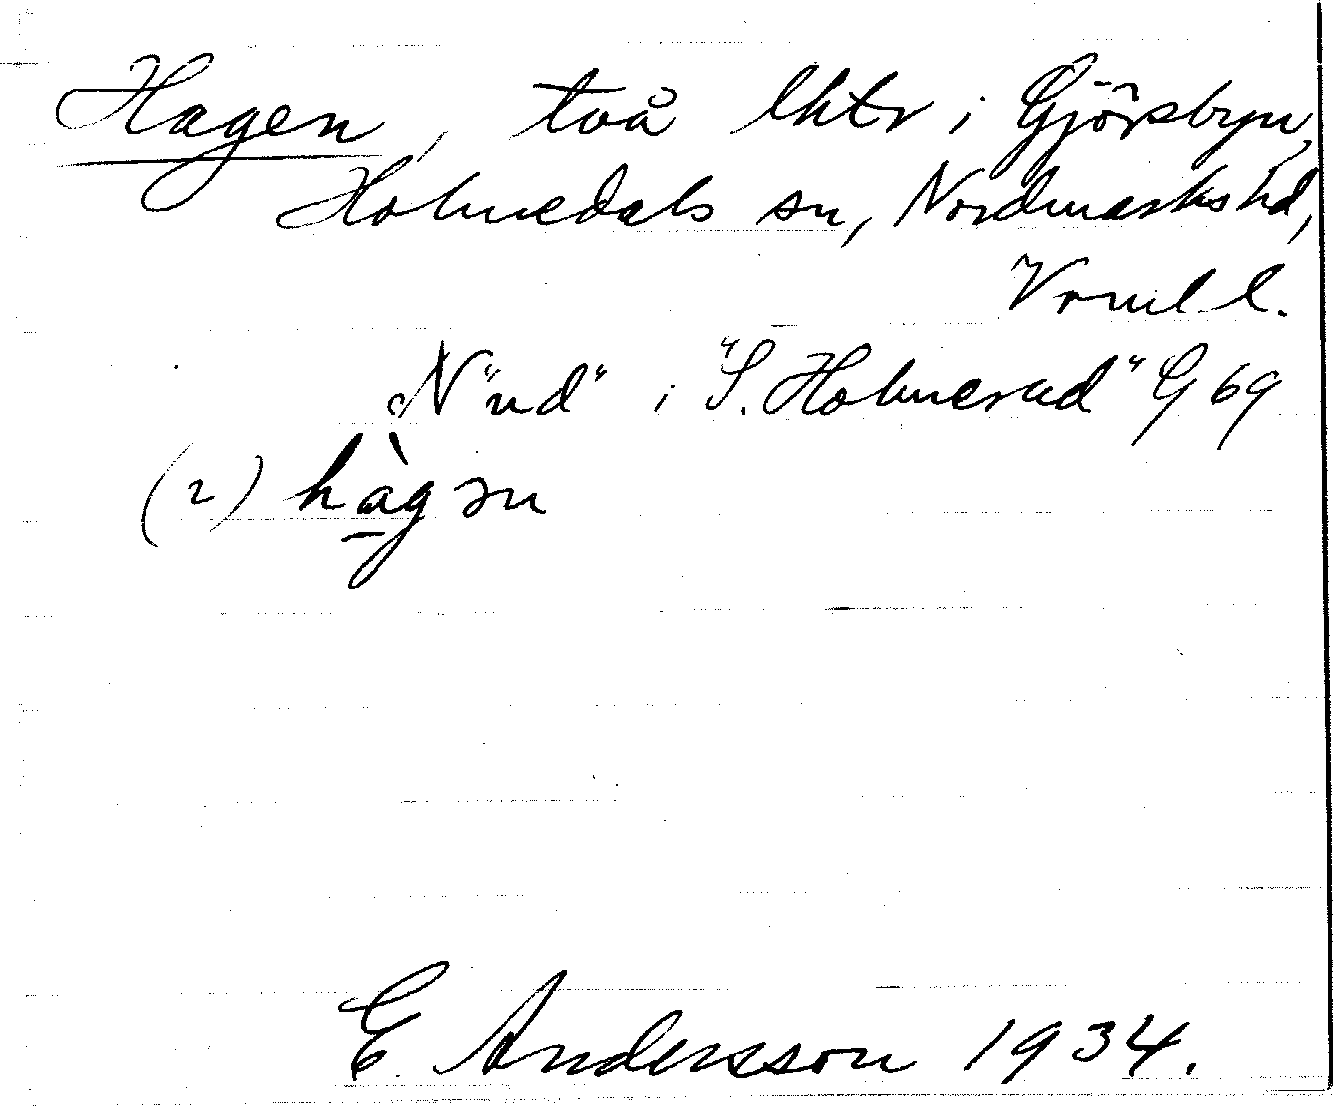 Hagen, två lhtr i Gjörsbyn,
Holmedals sn, Nordmarks hd,
Vrml l.
N "ud" i "S. Holmerud" G 69
(2) hàgɜn
E Andersson 1934.